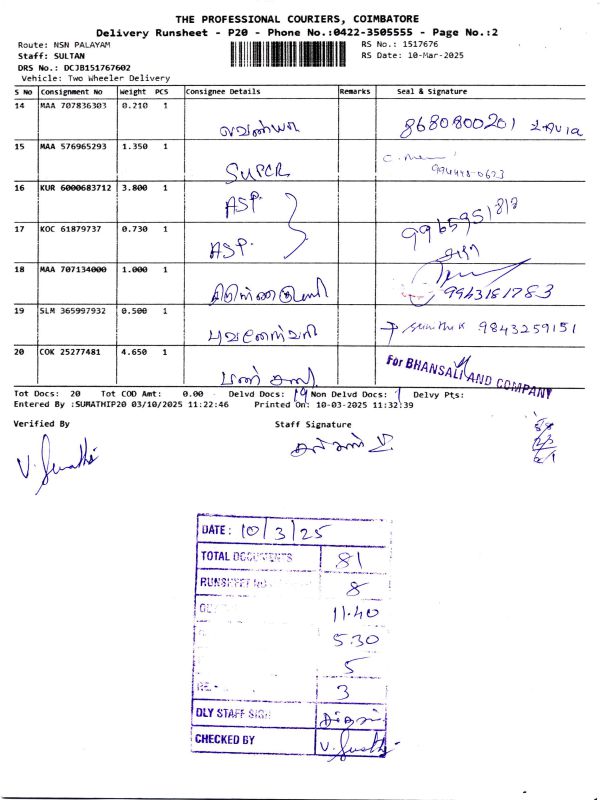 THE PROFESSIONAL COURIERS, COIMBATORE
Delivery Runsheet - P20 - Phone No.:0422-3505555 - Page No.:2
Route: NSN PALAYAM RS No.: 1517676
Staff: SULTAN RS Date: 10-Mar-2025
DRS No.: DCJB151767602
Vehicle: Two Wheeler Delivery
S NO Consignment No Weight PCS Consignee Details Remarks Seal & Signature
14 MAA 707836303 0.210 1 லாவண்யா 8680800201
15 MAA 576965293 1.350 1 SUPER
16 KUR 6000683712 3.800 1 ASP.
17 KOC 61879737 0.730 1 ASP.
18 MAA 707134000 1.000 1 9943181783
19 SLM 365997932 0.500 1 புவனேஸ்வரி 9843259151
20 COK 25277481 4.650 1 For BHANSALI AND COMPANY
Tot Docs: 20 Tot COD Amt: 0.00 Delvd Docs: 19 Non Delvd Docs: 1 Delvy Pts:
Entered By :SUMATHIP20 03/10/2025 11:22:46 Printed On: 10-03-2025 11:32:39
Verified By Staff Signature
DATE: 10/3/25
TOTAL DOCUMENTS 81
RUNSHEET 8
11.40
5.30
5
3
DLY STAFF SIGN
CHECKED BY